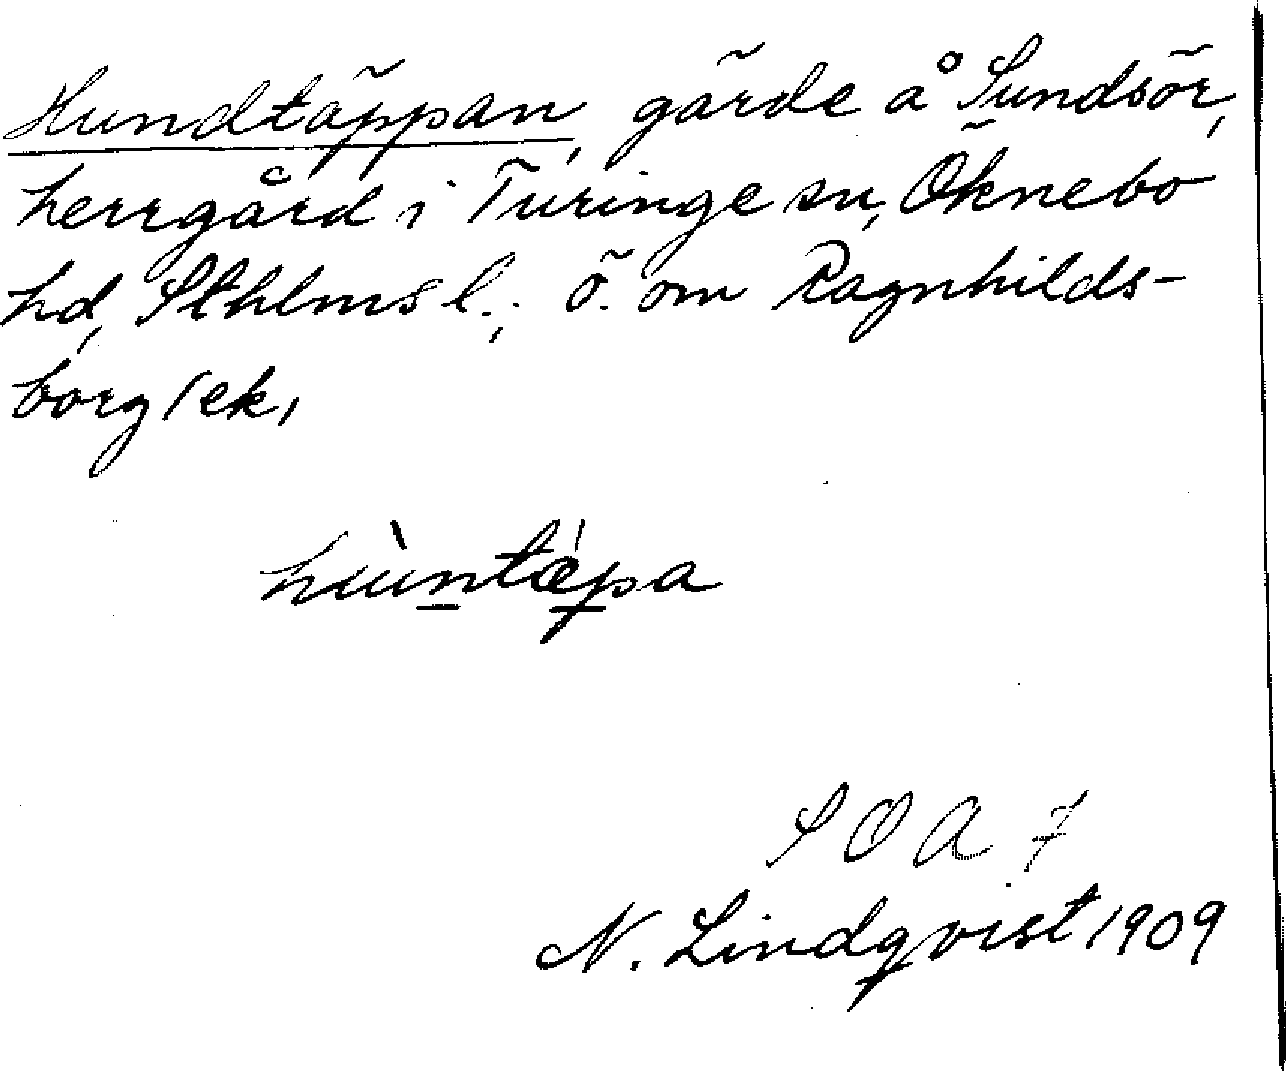 Hundtäppan, gärde å Sundsör,
herrgård i Turinge sn, Öknebo
hd, Sthlms l.; ö. om Ragnhilds-
borg (ek,
hùntǽpa
S O A 7
N. Lindqvist 1909